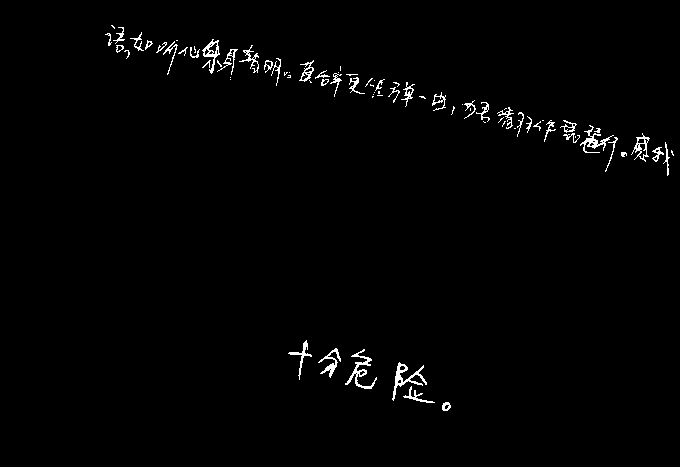 语,如听仙乐耳暂明。莫辞更坐弹一曲,为君翻作琵琶行。感我
十分危险。